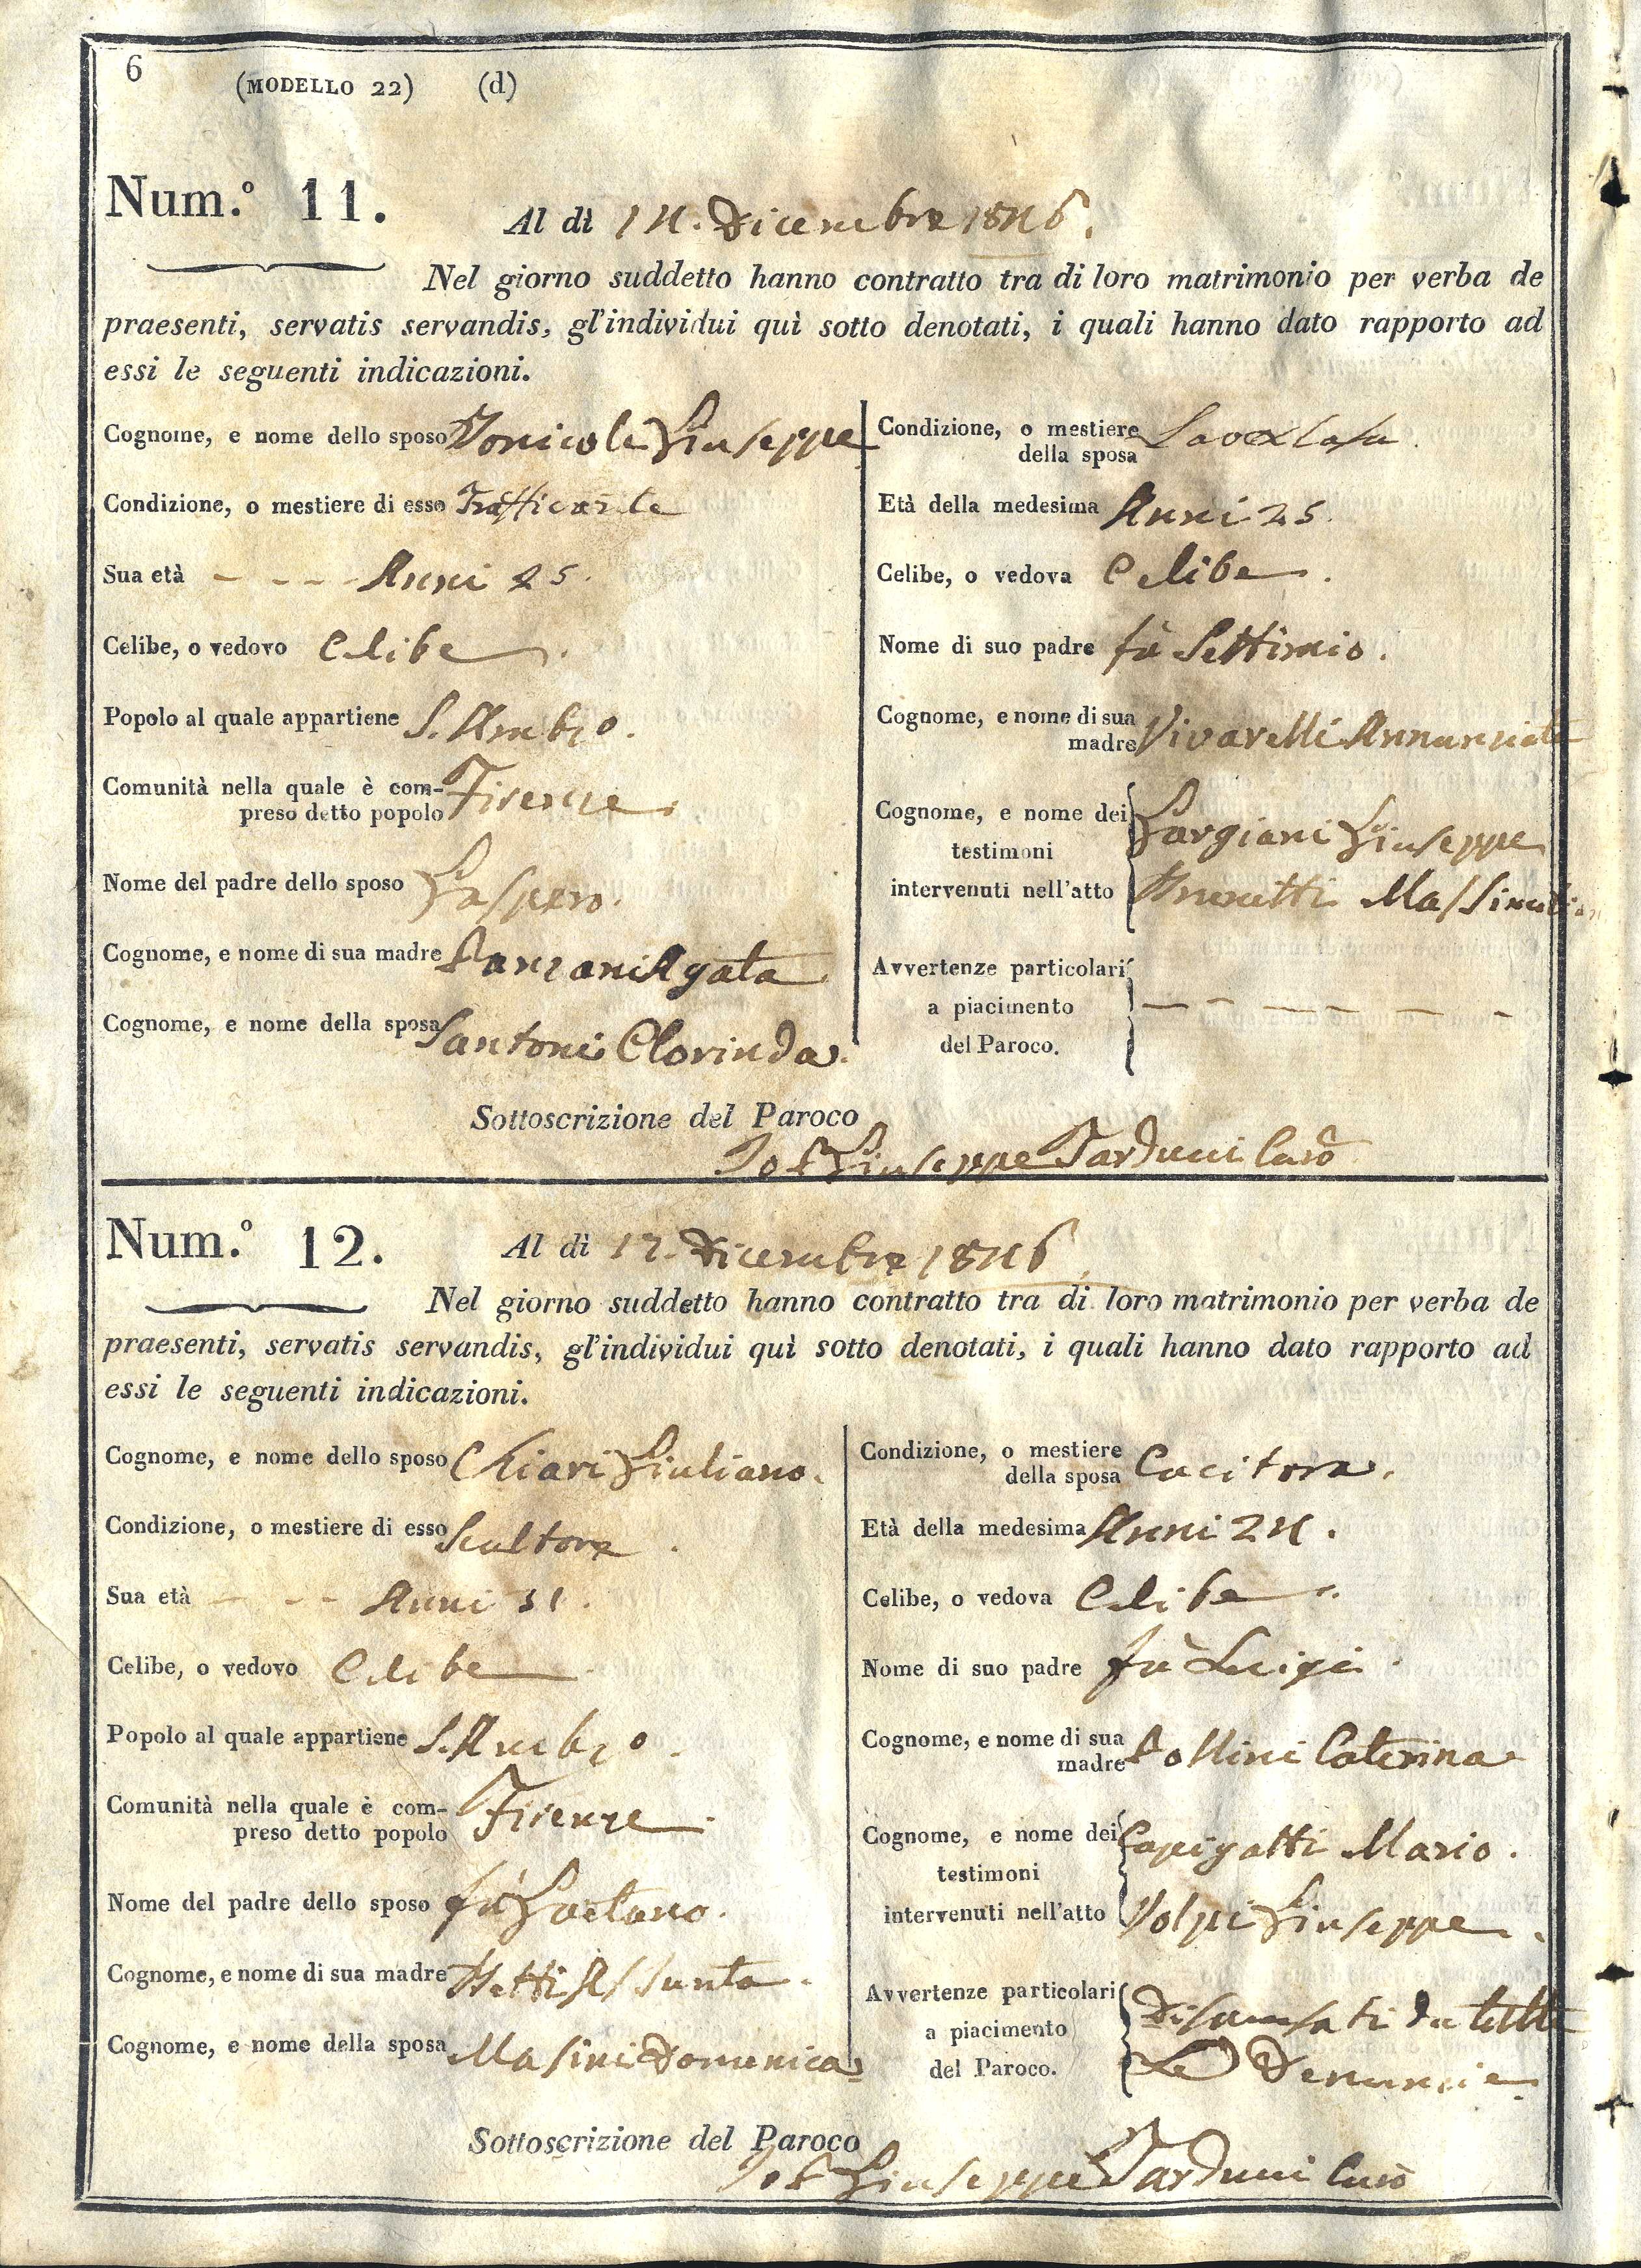 6
(MODELLO 22) (d)
Num.º 11.
Al dì 14. Dicembre 1846.
Nel giorno suddetto hanno contratto tra di loro matrimonio per verba de
praesenti, servatis servandis, gl'individui quì sotto denotati, i quali hanno dato rapporto ad
essi le seguenti indicazioni.
Cognome, e nome dello sposo Giuseppe
Condizione, o mestiere di esso Trafficante
Sua età - - - - Anni 25.
Celibe, o vedovo Celibe.
Popolo al quale appartiene S. Ambr.o.
Comunità nella quale è com-
preso detto popolo Firenze.
Nome del padre dello sposo Gaspero.
Cognome, e nome di sua madre Agata
Cognome, e nome della sposa Santoni Clorinda.
Condizione, o mestiere
della sposa
Età della medesima Anni 25.
Celibe, o vedova Celibe.
Nome di suo padre fù Settimio.
Cognome, e nome di sua
madre Vivarelli Annunziata
Cognome, e nome dei
testimoni
Giuseppe
intervenuti nell'atto
Avvertenze particolari
a piacimento - - - - - - -
del Paroco.
Sottoscrizione del Paroco
Giuseppe Tarduni
Num.º 12.
Al dì 17. Dicembre 1846
Nel giorno suddetto hanno contratto tra di loro matrimonio per verba de
praesenti, servatis servandis, gl'individui quì sotto denotati, i quali hanno dato rapporto ad
essi le seguenti indicazioni.
Cognome, e nome dello sposo Chiari Giuliano.
Condizione, o mestiere di esso Scultore.
Sua età - - - Anni 31.
Celibe, o vedovo Celibe
Popolo al quale appartiene S. Ambr.o.
Comunità nella quale è com-
preso detto popolo Firenze.
Nome del padre dello sposo fù Gaetano.
Cognome, e nome di sua madre Assunta.
Cognome, e nome della sposa Masini Domenica
Condizione, o mestiere
della sposa Cucitora.
Età della medesima Anni 24.
Celibe, o vedova Celibe.
Nome di suo padre fù Luigi.
Cognome, e nome di sua
madre Caterina
Cognome, e nome dei Mario.
testimoni
intervenuti nell'atto Volpi Giuseppe.
Avvertenze particolari Dispensati da tutte
a piacimento
del Paroco. Le Denunzie
Sottoscrizione del Paroco
Giuseppe Tarduni